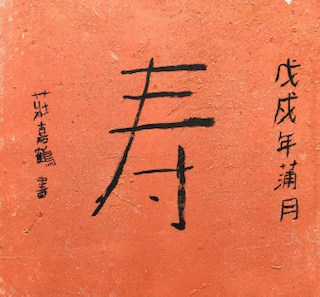 戊戌年蒲月
寿
莊嘉鶴書